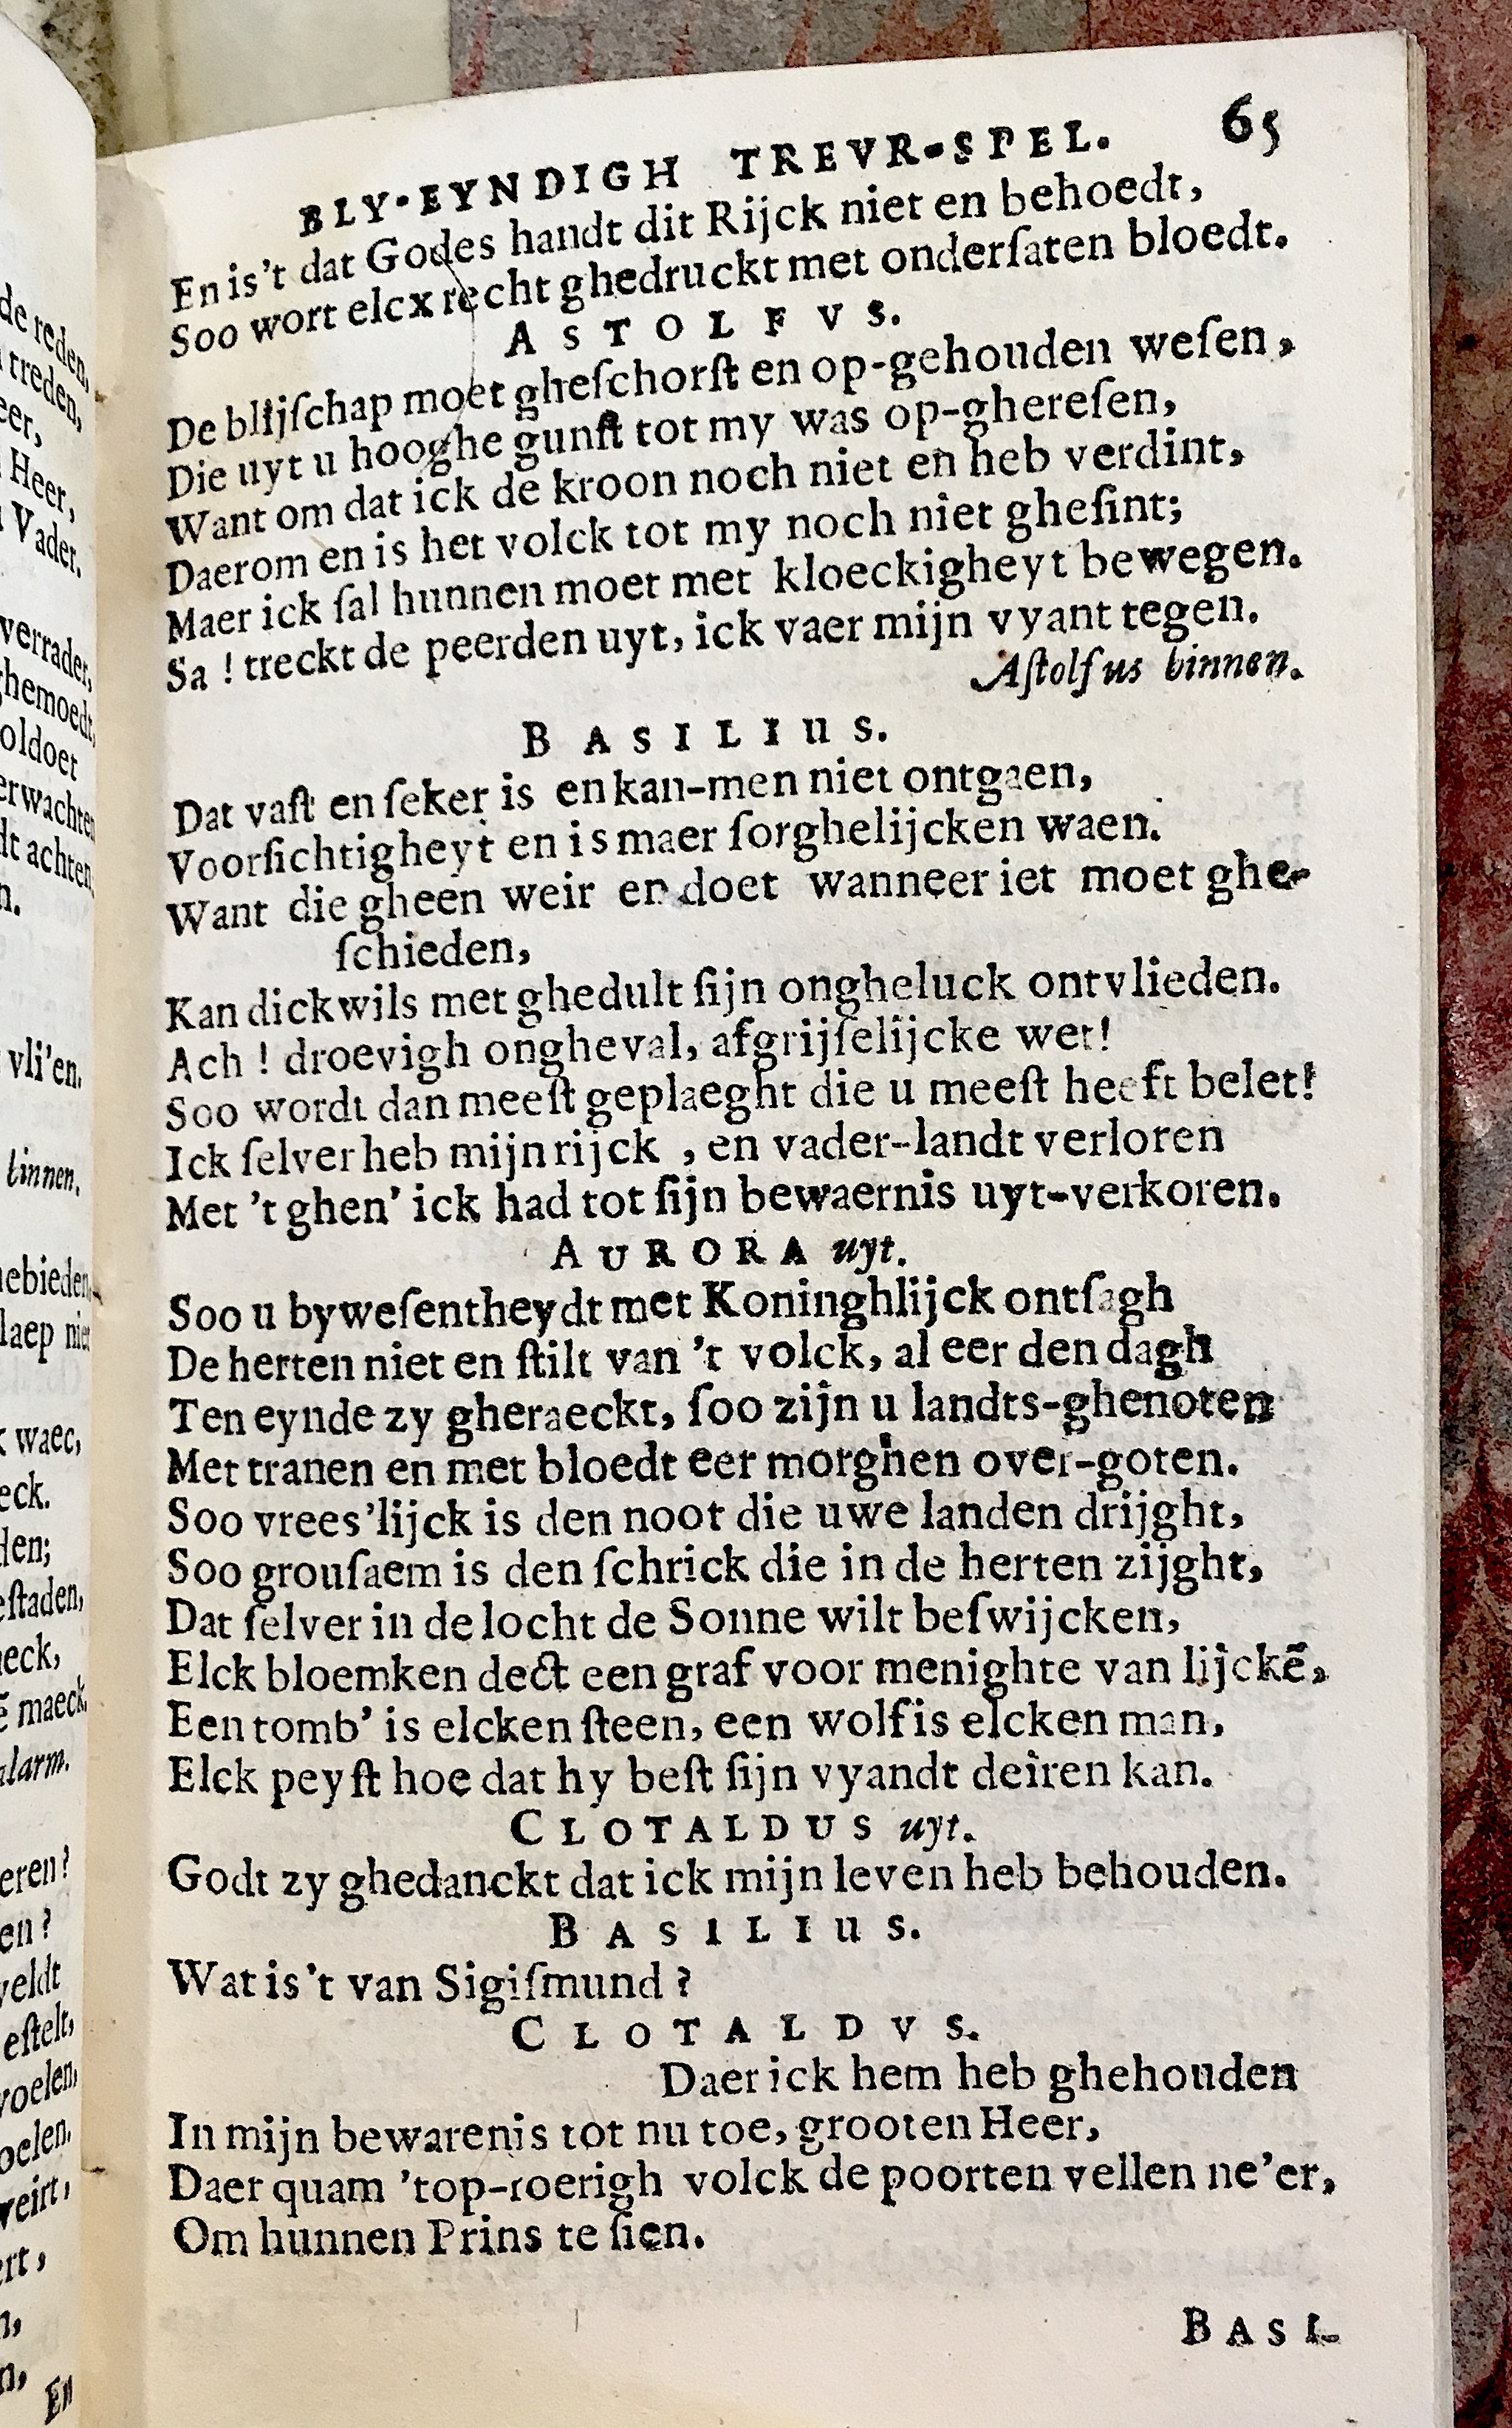 BLY-EYNDIGH TREVR-SPEL. 65
En is't dat Godes handt dit Rijck niet en behoedt,
Soo wort elcx recht ghedruckt met onderſaten bloedt.
ASTOLFVS.
De blijſchap moet gheſchorſt en op-gehouden weſen,
Die uyt u hooghe gunſt tot my was op-ghereſen,
Want om dat ick de kroon noch niet en heb verdint,
Daerom en is het volck tot my noch niet gheſint;
Maer ick ſal hunnen moet met kloeckigheyt bewegen.
Sa ! treckt de peerden uyt, ick vaer mijn vyant tegen.
Aſtolfus binnen.
BASILIUS.
Dat vaſt en ſeker is en kan-men niet ontgaen,
Voorſichtigheyt en is maer ſorghelijcken waen.
Want die gheen weir en doet wanneer iet moet ghe-
ſchieden,
Kan dickwils met ghedult ſijn ongheluck ontvlieden.
Ach ! droevigh ongheval, afgrijſelijcke wet!
Soo wordt dan meeſt geplaeght die u meeſt heeft belet!
Ick ſelver heb mijn rijck , en vader-landt verloren
Met 't ghen' ick had tot ſijn bewaernis uyt-verkoren.
AURORA uyt.
Soo u byweſentheydt met Koninghlijck ontſagh
De herten niet en ſtilt van 't volck, al eer den dagh
Ten eynde zy gheraeckt, ſoo zijn u landts-ghenoten
Met tranen en met bloedt eer morghen over-goten.
Soo vrees'lijck is den noot die uwe landen drijght,
Soo grouſaem is den ſchrick die in de herten zijght,
Dat ſelver in de locht de Sonne wilt beſwijcken,
Elck bloemken dect een graf voor menighte van lijckē,
Een tomb' is elcken ſteen, een wolf is elcken man,
Elck peyſt hoe dat hy beſt ſijn vyandt deiren kan.
CLOTALDUS uyt.
Godt zy ghedanckt dat ick mijn leven heb behouden.
BASILIUS.
Wat is't van Sigiſmund ?
CLOTALDVS.
Daer ick hem heb ghehouden
In mijn bewarenis tot nu toe, grooten Heer,
Daer quam 'top-roerigh volck de poorten vellen ne'er,
Om hunnen Prins te ſien.
BASI-
de reden,
treden,
eer,
Heer,
Vader.
verrader,
ghemoedt,
oldoet
erwachten
dt achten
n.
vli'en.
binnen.
ebieden,
laep niet
waec,
eck.
den;
eſtaden,
eck,
maeck.
alarm.
eren ?
en ?
veldt
eſtelt,
voelen,
oelen.
weirt,
rt,
n,
n,
En